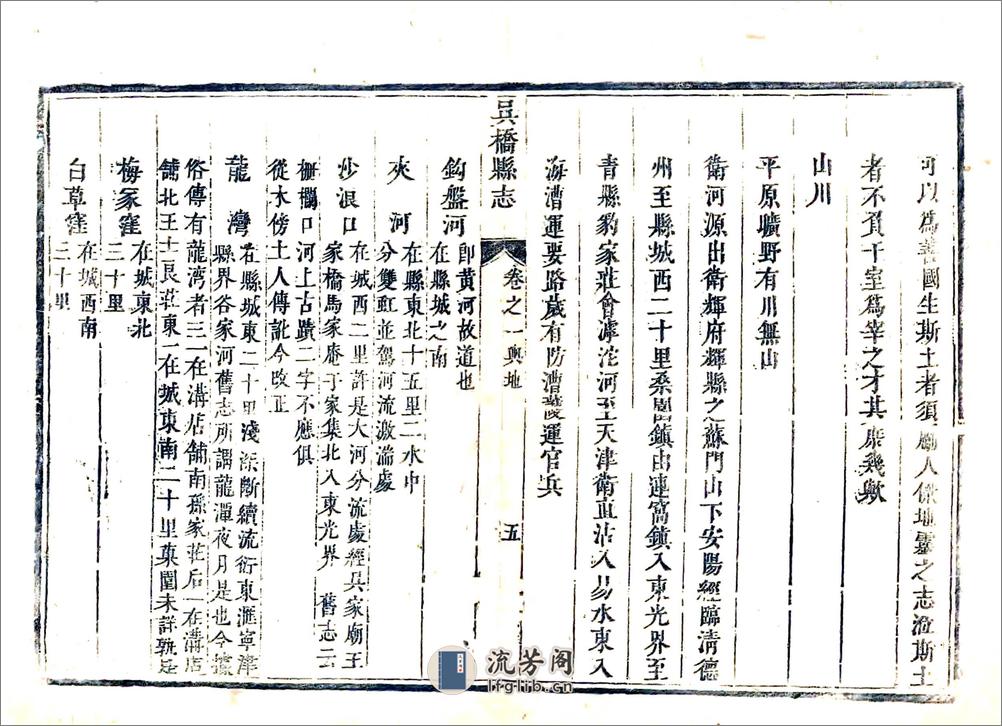 可以為善國生斯土者須勵人傑地靈之志涖斯土
者不負千室為宰之才其庶幾歟
山川
平原曠野有川無山
衛河源出衛輝府輝縣之蘇門山下安陽經臨清德
州至縣城西二十里桑園鎮由連窩鎮入東光界至
青縣豹家莊會滹沱河至天津衛直沽入易水東入
海漕運要路歲有防漕護運官兵
吳橋縣志
卷之一 輿地
五
鈎盤河
即黃河故道也
在縣城之南
夾河
在縣東北十五里二水中
分雙虹並駕河流激湍處
沙浪口
在城西二里許是大河分流處經吳家廟王
家橋馬家庵于家集北入東光界 舊志云
柵欄口河上古蹟二字不應俱
從木傍土人傳訛今改正
龍灣
在縣城東二十里淺深斷續流衍東滙寧津
縣界谷家河舊志所謂龍潭夜月是也今據
俗傳有龍湾者三一在溝店舖南孫家莊后一在溝店
舖北王士良莊東一在城東南二十里菓園未詳孰是
梅家窪
在城東北
三十里
白草窪
在城西南
三十里
流芳阁
lfglib.cn